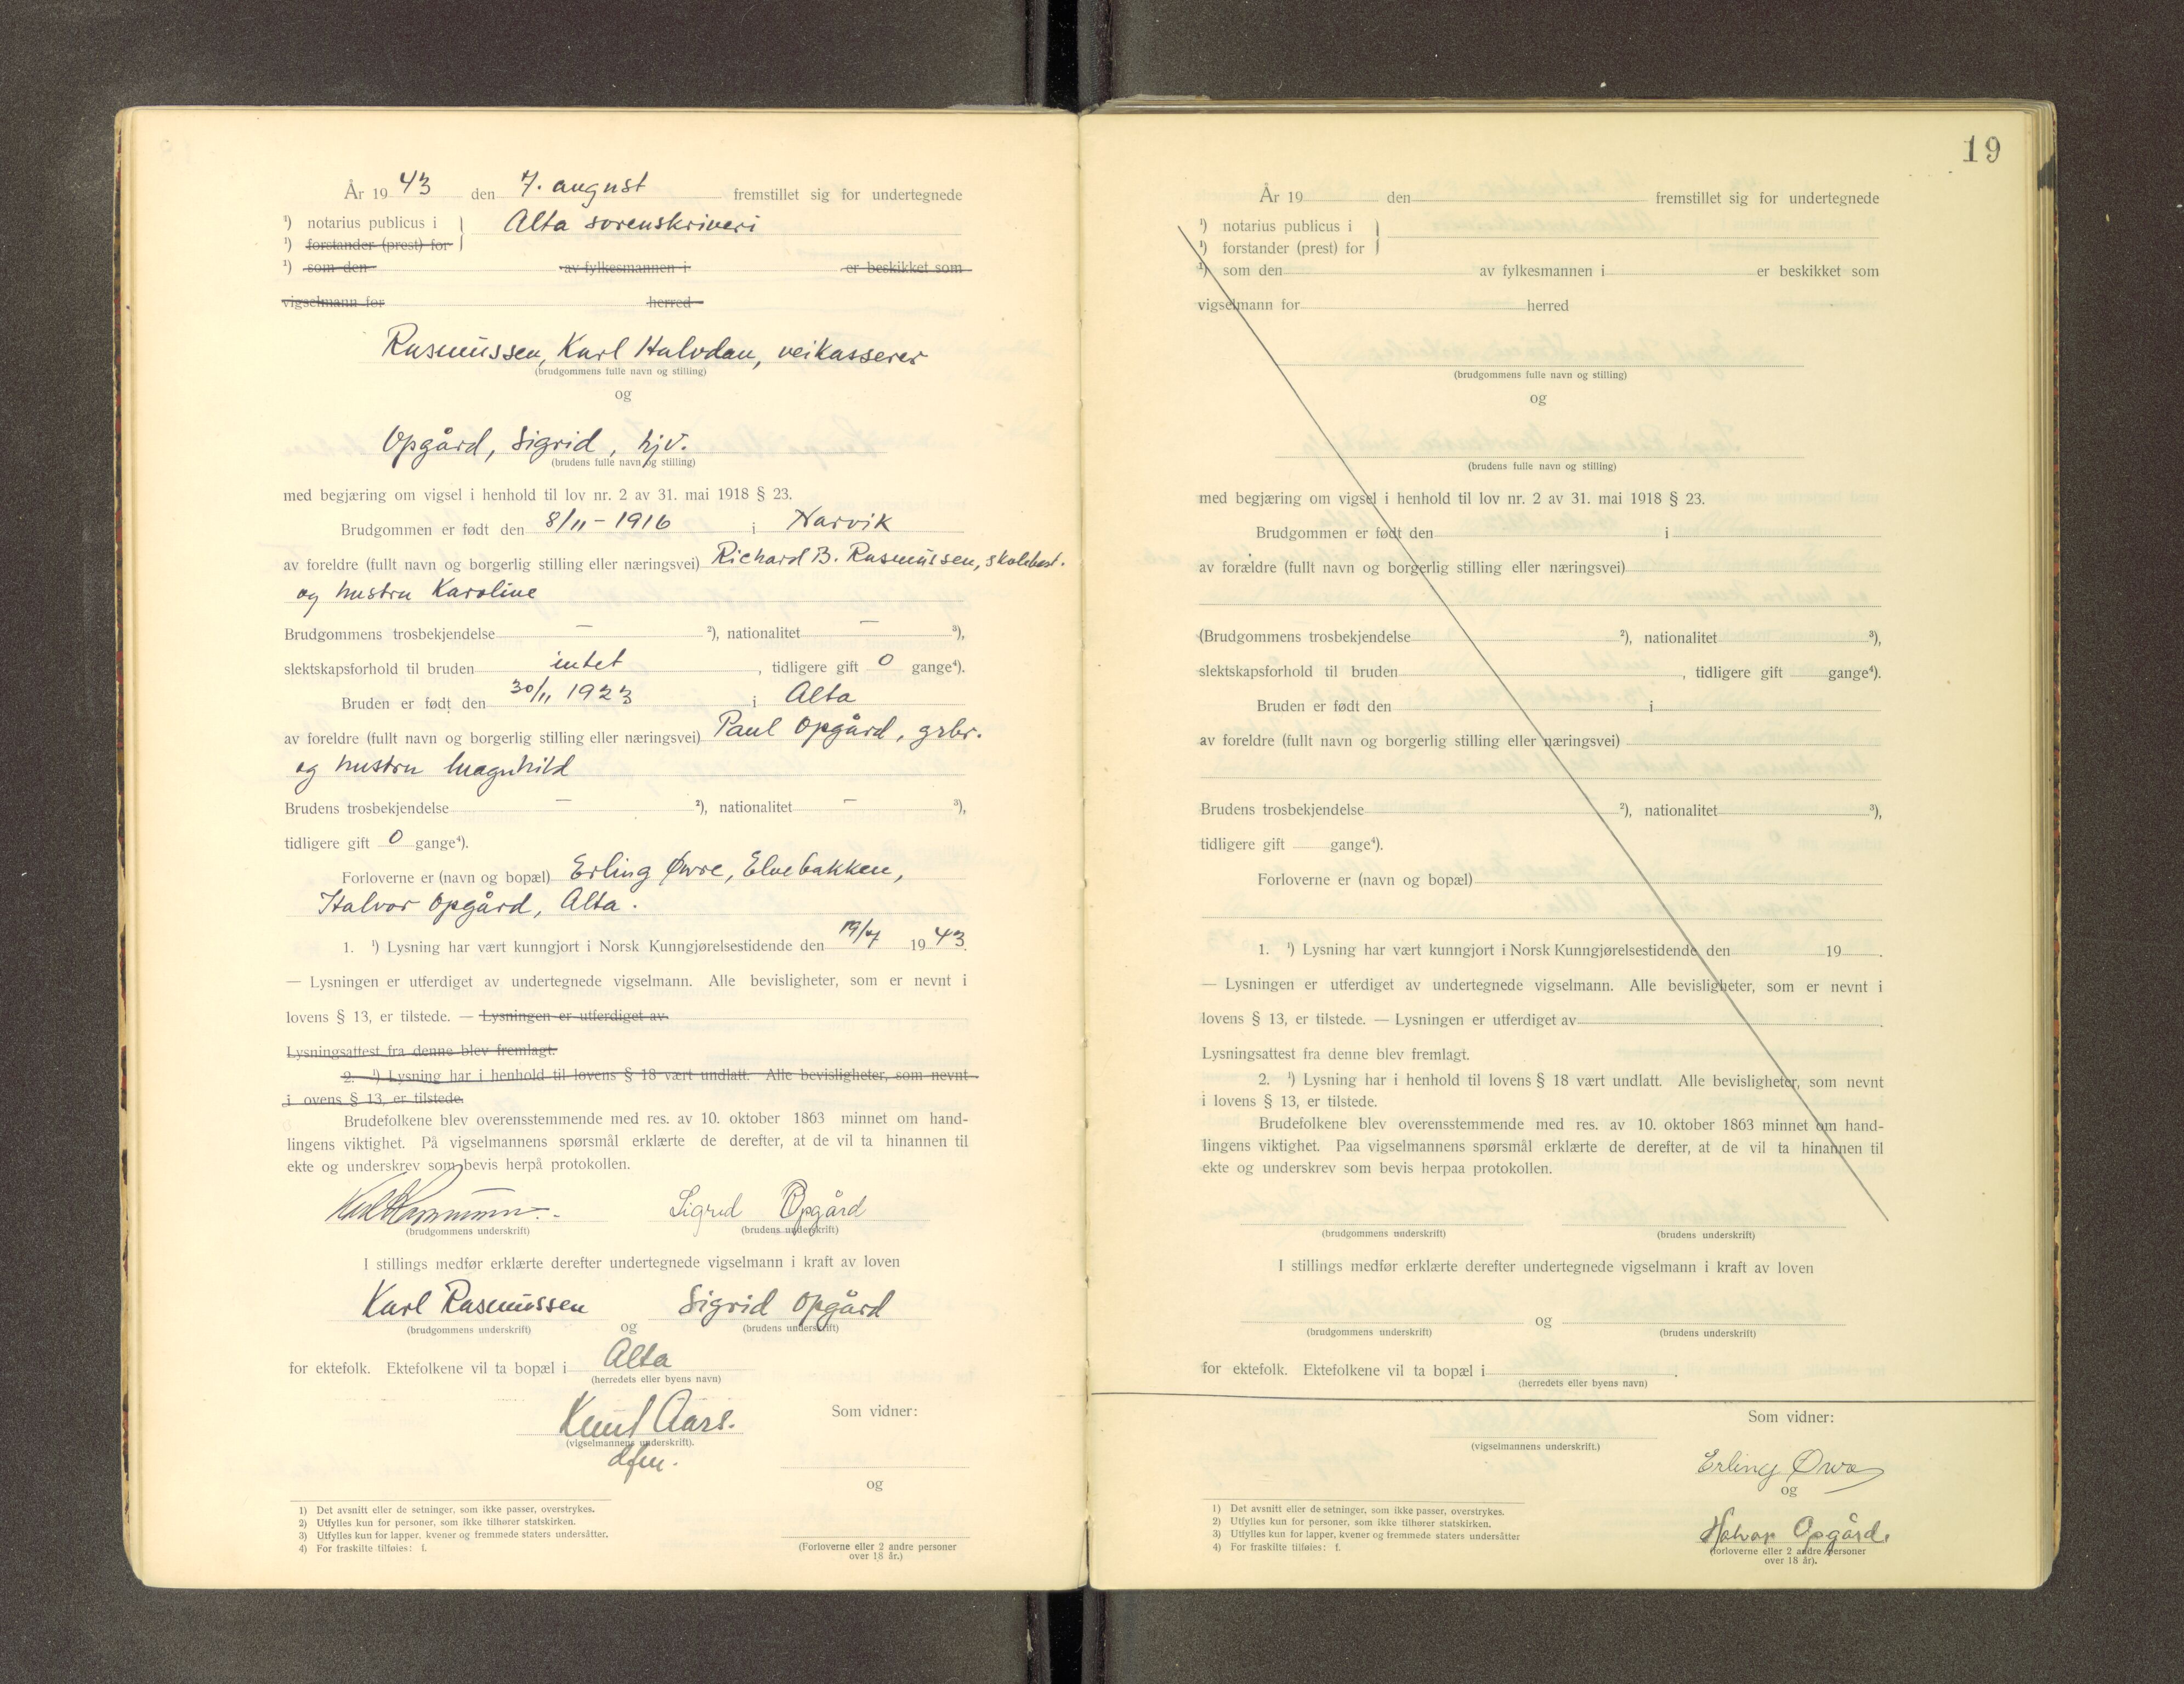 År 19 43 den 7. august fremstillet sig for undertegnede
¹) notarius publicus i } Alta sorenskriveri
¹) forstander (prest) for
¹) som den av fylkesmannen i er beskikket som
vigselmann for herred
Rasmussen, Karl Halvdan, veikasserer
(brudgommens fulle navn og stilling)
og
Opgård, Sigrid, hjv.
(brudens fulle navn og stilling)
med begjæring om vigsel i henhold til lov nr. 2 av 31. mai 1918 § 23.
Brudgommen er født den 8/11 - 1916 i Narvik
av foreldre (fullt navn og borgerlig stilling eller næringsvei) Richard B. Rasmussen, skolebest.
og hustru Karoline
Brudgommens trosbekjendelse — ²), nationalitet — ³),
slektskapsforhold til bruden intet, tidligere gift 0 gange⁴).
Bruden er født den 30/11 1923 i Alta
av foreldre (fullt navn og borgerlig stilling eller næringsvei) Paul Opgård, grbr.
og hustru Magnhild
Brudens trosbekjendelse — ²), nationalitet — ³),
tidligere gift 0 gange⁴).
Forloverne er (navn og bopæl) Erling Øvre, Elvebakken,
Halvor Opgård, Alta.
1. ¹) Lysning har vært kunngjort i Norsk Kunngjørelsestidende den 19/7 19 43.
— Lysningen er utferdiget av undertegnede vigselmann. Alle bevisligheter, som er nevnt i
lovens § 13, er tilstede. — Lysningen er utferdiget av
Lysningsattest fra denne blev fremlagt.
2. ¹) Lysning har i henhold til lovens § 18 vært undlatt. Alle bevisligheter, som nevnt
i ovens § 13, er tilstede.
Brudefolkene blev overensstemmende med res. av 10. oktober 1863 minnet om hand-
lingens viktighet. På vigselmannens spørsmål erklærte de derefter, at de vil ta hinannen til
ekte og underskrev som bevis herpå protokollen.
Karl Rasmussen. Sigrid Opgård
(brudgommens underskrift) (brudens underskrift)
I stillings medfør erklærte derefter undertegnede vigselmann i kraft av loven
Karl Rasmussen og Sigrid Opgård
(brudgommens underskrift) (brudens underskrift)
for ektefolk. Ektefolkene vil ta bopæl i Alta
(herredets eller byens navn)
Knut Aars.
(vigselmannens underskrift).
dfm.
Som vidner:
og
(Forloverne eller 2 andre personer
over 18 år.)
1) Det avsnitt eller de setninger, som ikke passer, overstrykes.
2) Utfylles kun for personer, som ikke tilhører statskirken.
3) Utfylles kun for lapper, kvener og fremmede staters undersåtter.
4) For fraskilte tilføies: f.
19
År 19 den fremstillet sig for undertegnede
¹) notarius publicus i }
¹) forstander (prest) for
¹) som den av fylkesmannen i er beskikket som
vigselmann for herred
(brudgommens fulle navn og stilling)
og
(brudens fulle navn og stilling)
med begjæring om vigsel i henhold til lov nr. 2 av 31. mai 1918 § 23.
Brudgommen er født den i
av forældre (fullt navn og borgerlig stilling eller næringsvei)
(Brudgommens trosbekjendelse ²), nationalitet ³),
slektskapsforhold til bruden , tidligere gift gange⁴).
Bruden er født den i
av foreldre (fullt navn og borgerlig stilling eller næringsvei)
Brudens trosbekjendelse ²), nationalitet ³),
tidligere gift gange⁴).
Forloverne er (navn og bopæl)
1. ¹) Lysning har vært kunngjort i Norsk Kunngjørelsestidende den 19 .
— Lysningen er utferdiget av undertegnede vigselmann. Alle bevisligheter, som er nevnt i
lovens § 13, er tilstede. — Lysningen er utferdiget av .
Lysningsattest fra denne blev fremlagt.
2. ¹) Lysning har i henhold til lovens § 18 vært undlatt. Alle bevisligheter, som nevnt
i lovens § 13, er tilstede.
Brudefolkene blev overensstemmende med res. av 10. oktober 1863 minnet om hand-
lingens viktighet. Paa vigselmannens spørsmål erklærte de derefter, at de vil ta hinannen til
ekte og underskrev som bevis herpaa protokollen.
(brudgommens underskrift) (brudens underskrift)
I stillings medfør erklærte derefter undertegnede vigselmann i kraft av loven
og
(brudgommens underskrift) (brudens underskrift)
for ektefolk. Ektefolkene vil ta bopæl i .
(herredets eller byens navn)
(vigselmannens underskrift.)
Som vidner:
Erling Øvre
og
Halvor Opgård.
(forloverne eller 2 andre personer
over 18 år).
1) Det avsnitt eller de setninger, som ikke passer, overstrykes.
2) Utfylles kun for personer, som ikke tilhører statskirken.
3) Utfylles kun for lapper, kvener og fremmede staters undersåtter
4) For fraskilte tilføies: f.